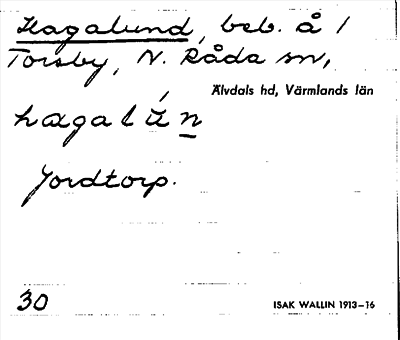 Hagalund, beb. å 1
Torsby, N. Råda sn,
Älvdals hd, Värmlands län
hagalún
Jordtorp.
30
ISAK WALLIN 1913–16